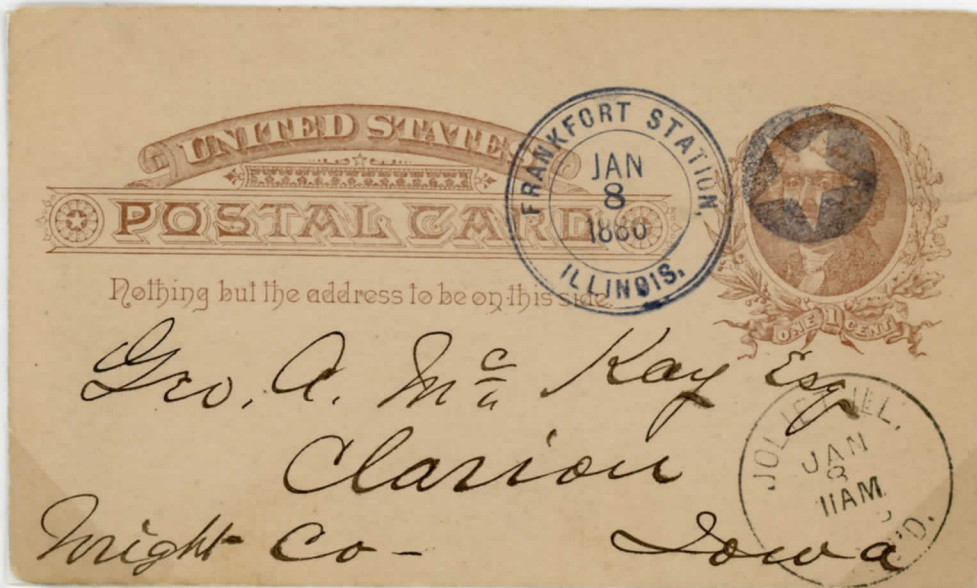 UNITED STATES
POSTAL CARD
Nothing but the address to be on this side.
FRANKFORT STATION,
JAN
8
ILLINOIS.
ONE 1 CENT
Geo. A. Mc Kay Esq
Clarion
Wright Co – Iowa
JOLIET ILL.
JAN
8
11AM
REC'D.